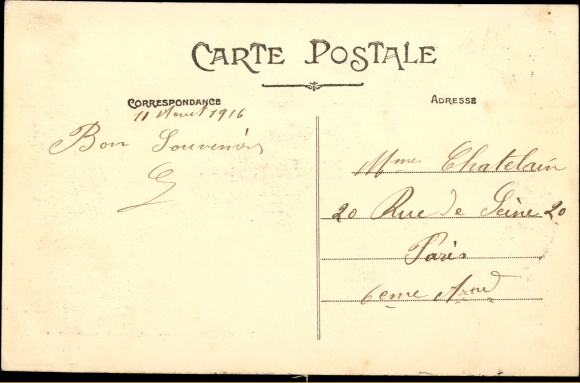 CARTE POSTALE
CORRESPONDANCE
11 Aout 1916
Bon Souvenir
ADRESSE
Mme Chatelain
20 Rue de Seine 20
Paris
6eme Arrd